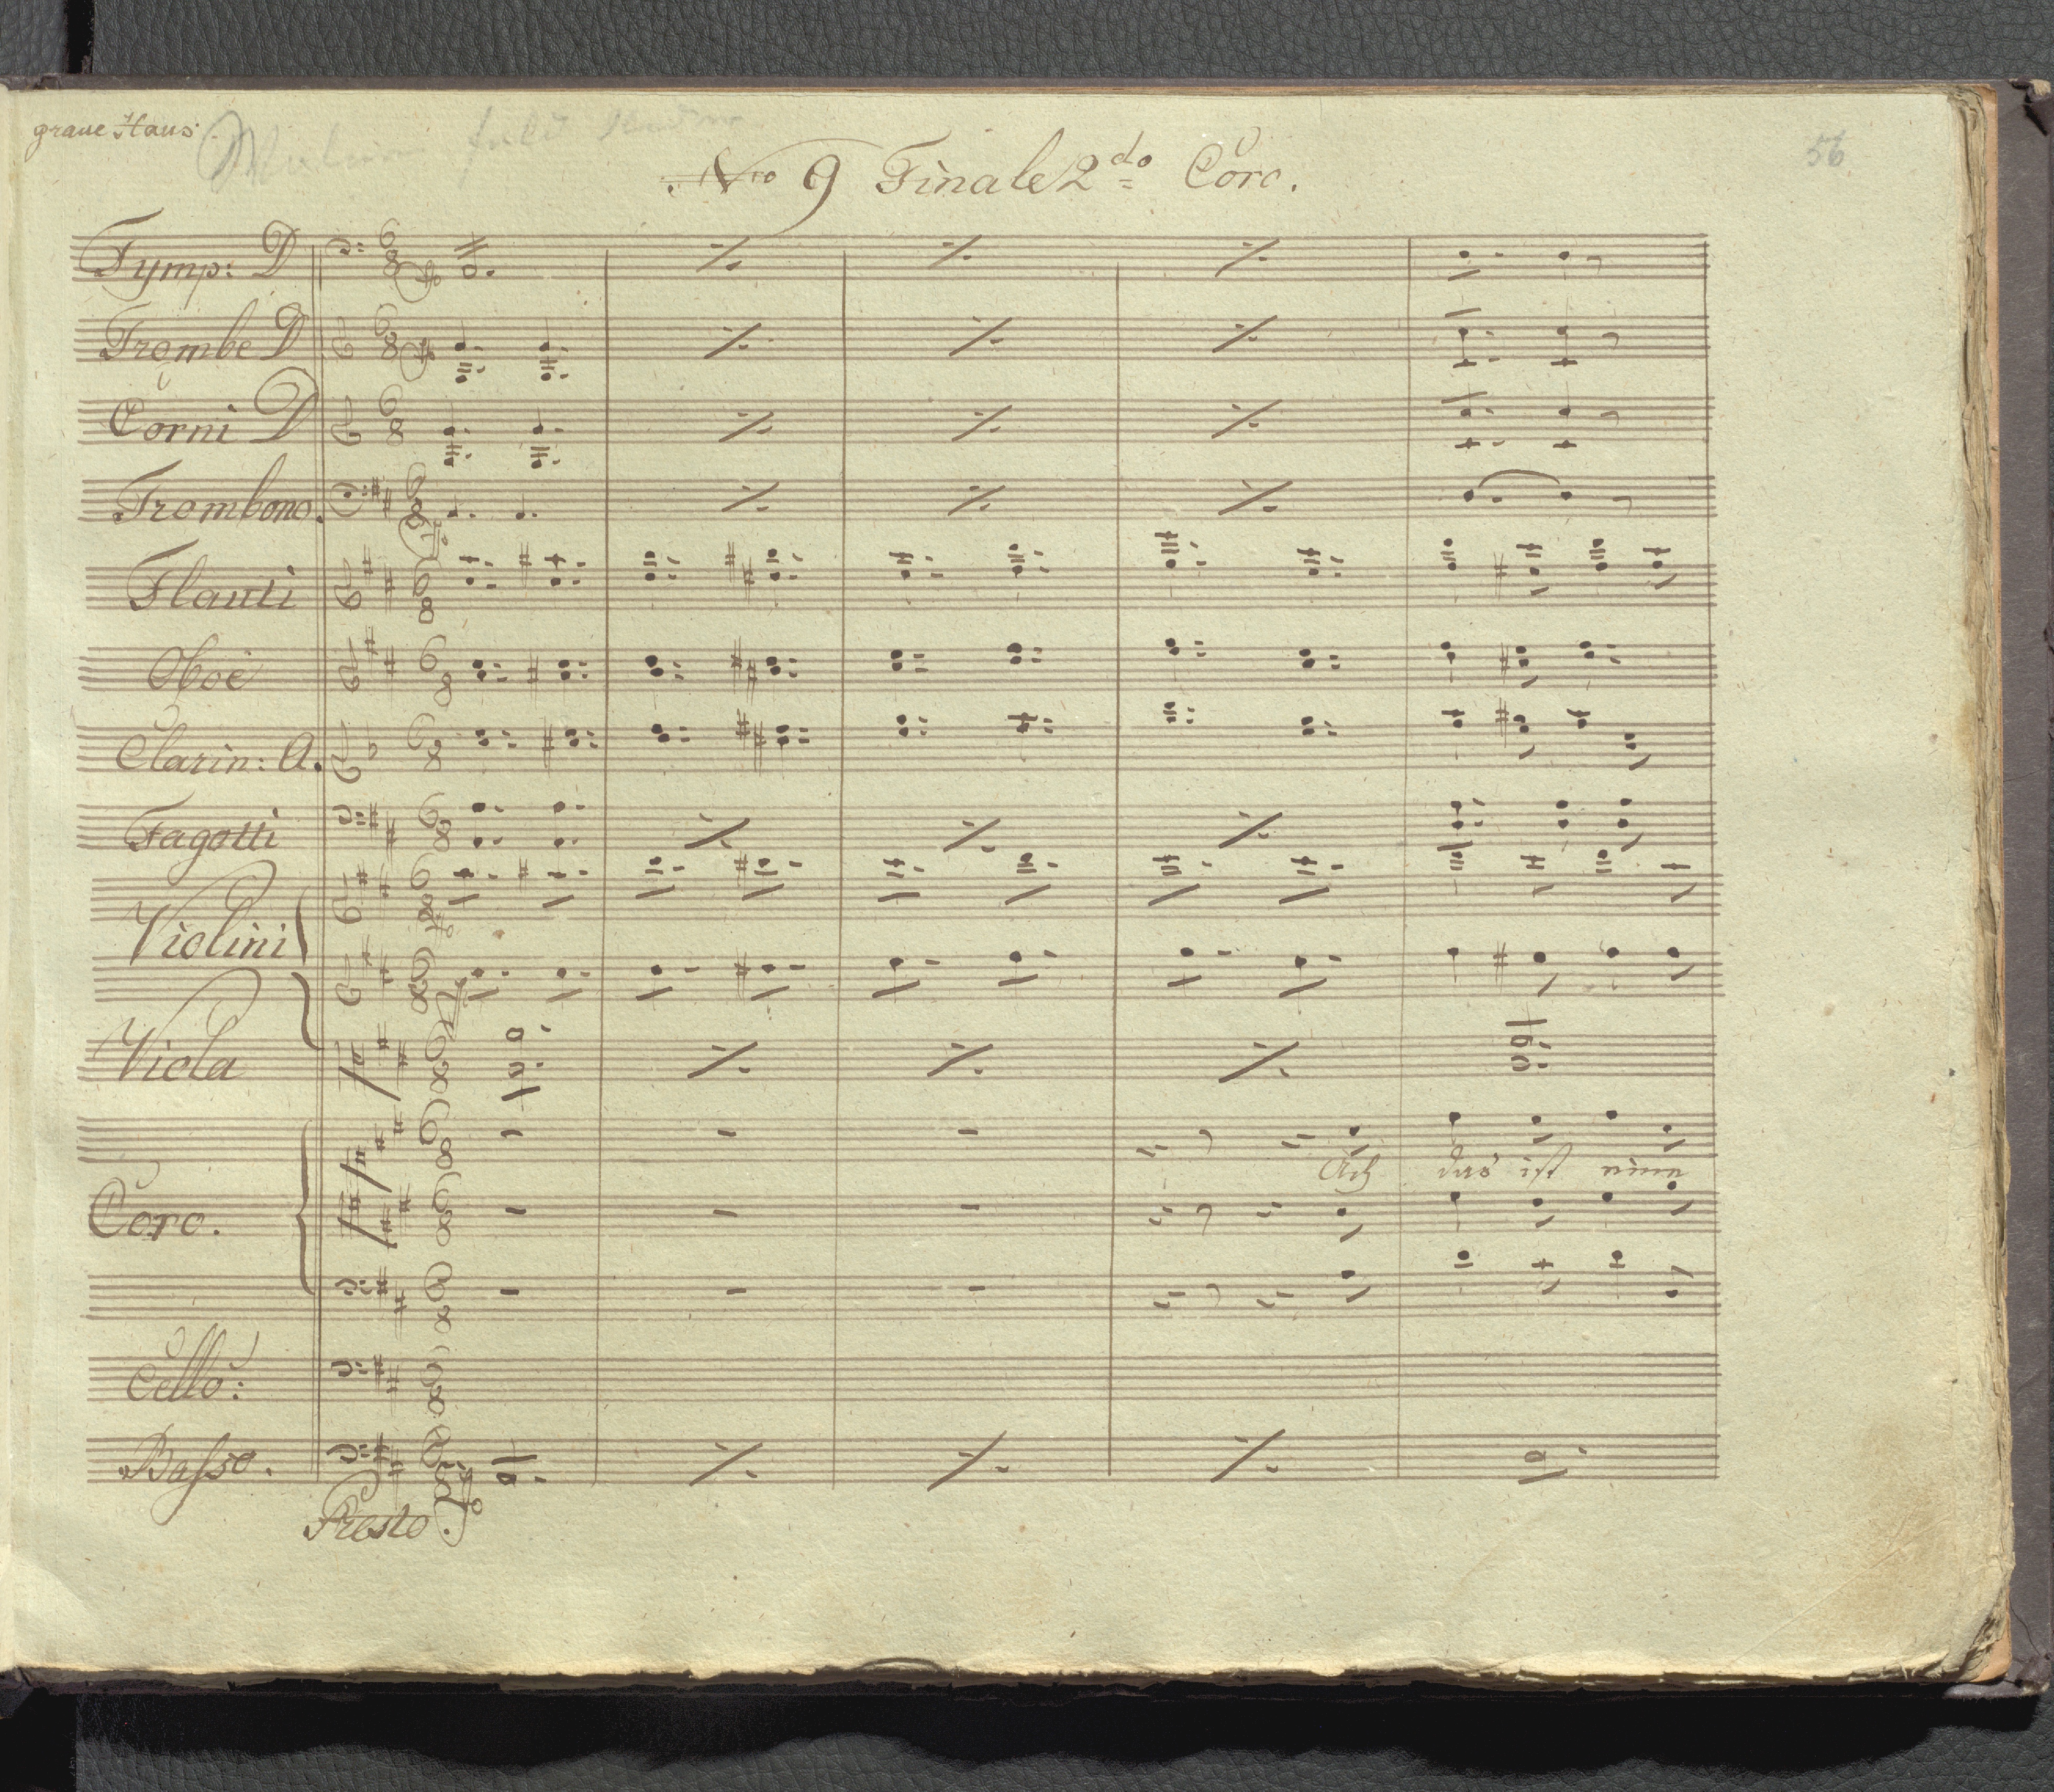 graue Haus
56
Nro 9 Finale 2do Coro.
Tymp: D
Trombe D
Corni D
Trombono.
Flauti
Oboè
Clarin: A.
Fagotti
Violini
Viola
Ach das ist eine
Coro.
Cello:
Basso.
Presto.